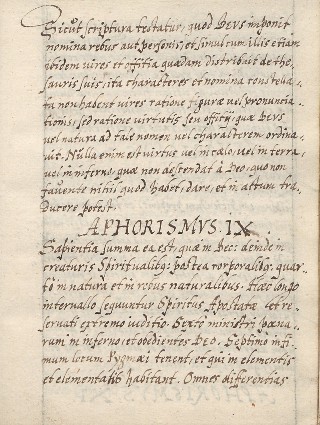 Sicut scriptura testatur, quod DEVS imponit
nomina rebus aut personis, et simul cum illis etiam
ibidem vires et offitia quædam distribuit de the-
sauris suis, ita characteres et nomina constella-
ta non habent vires ratione figuræ vel pronuncia-
tionis, sed ratione virtutis seu officij, quæ DEVS
vel natura ad tale nomen vel characterem ordina-
vit. Nulla enim est virtus vel in cælo, vel in terra,
vel in inferno, quæ non descendat à Deo, quo non
favente nihil quod habet, dare, et in actum tra-
ducere potest.
APHORISMVS. IX.
Sapientia summa ea est, quæ in Deo: deinde in
creaturis Spiritualibq: postea corporalibq: quar-
tò in natura et in rebus naturalibus. Hæc longo
intervallo sequuntur Spiritus Apostatæ et re-
servati extremo iuditio. Sextò ministri pœna-
rum in inferno, et obedientes DEO. Septimo infi-
mum locum Pygmæi tenent, et qui in elementis
et elementatis habitant. Omnes differentias